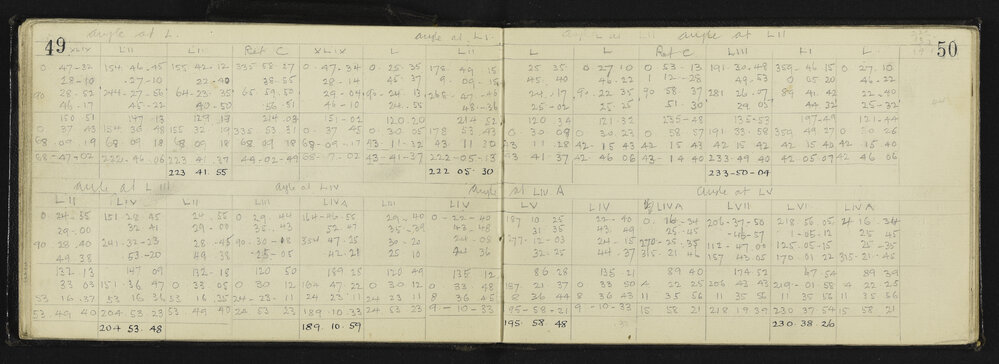 49
angle at L.
angle at LI.
XLIX LII LII Ref C XLIX L LII
0. 47-32 154 46-45 155 42-12 335 58-37 0. 47.34 0. 25-35 178 49.15
28-10 .27-10 38-55 28-14 45.37 9. 09-15
90 28-52 244-27-50 64-23-35 65.59.50 29-04 90-24.13 268.47-45
46-17 45-22 40-50 56-51 46-10 24-55 48-36
150 51 147.13 129.13 214.08 151-02 120.20 214 52
0. 37 43 154 36 48 155 32 19 335.53 31 0. 37 45 0. 30 05 178 53.43
68.09.19 68 09 18 68 09 18 68 09 18 68-09-17 43-11-32 43.11 30
68-47-02 222.46.06 223 41.37 44-02-49 43-41-37 222-05-13
223 41.55 222 05.30
angle at LIII
angle at LIV
LII LIV LII LIII LIVA LIII LIV
0. 24-35 151-28 45 24.35 0. 29.44 164-46-55 29.40 0-22-40
29-00 32 41 29-00 35.43 52.47 35-39 43-48
90 28.40 241-32-23 28-45 90-30-08 354 47-25 30-20 24-08
49.38 53-20 49 38 25-05 42.21 25 10 44 36
132.13 147 09 132-18 120 50 189 28 120 49 135 12
33 03 151.36 47 0 33 05 0 30 12 164 47 22 0 30 12 0 33.48
53 16.37 53 16 36 53 16 35 24-23-11 24 23 11 24 23 11 8 36 45
53 49 40 204 53.23 53 49 40 24 53 23 189 10 33 24 53 23 9-10-33
204 53.48 189.10.59
50
angle at LII
L L Ref C LIII L L
25 35 0 27 10 0 53-13 191.30.48 359.46 15 0 27.10
45.40 46.22 0 12-28 49-53 0 05 20 46-22
24.17 90.22 35 90 58 37 281 26.07 89 41 42 22.40
25-02 25.25 51.30 29 05 44 32 25-32
120 34 121.32 235-48 135-53 197-49 121-44
0. 30-08 0. 30 23 0 58 57 191 33 58 359 49 27 0 30 26
43 11 28 42-15 43 42 15 43 42 15 42 42 15 40 42 15 40
43-41 37 42 46 06 43-14 40 233-49 40 42 05 07 42 46 06
233-50-04
angle at LIV A
angle at LV
LV LIV LIVA LVII LVI LIVA
187 10 25 22-40 0 16-34 206-37-50 218 56.05 4 16.34
31 35 43.49 25-45 1-05-12 25 45
277-12-03 24-15 270-25.35 112-47.00 125.05-15 25-35
32-25 44.37 315-21 46 157 43 05 170 01 22 315-21-45
86 28 135-21 89 40 174 52 47-54 89 39
187 21 37 0 33 50 4 22 25 206 43 43 219-01-58 4 22 25
8 36 44 8 36 43 11 35 56 11 35 56 11 35 56 11 35 56
195-58-21 9-10-33 15 58 21 218 19 39 230 37 54 15 58 21
195 58 48 230.38 26